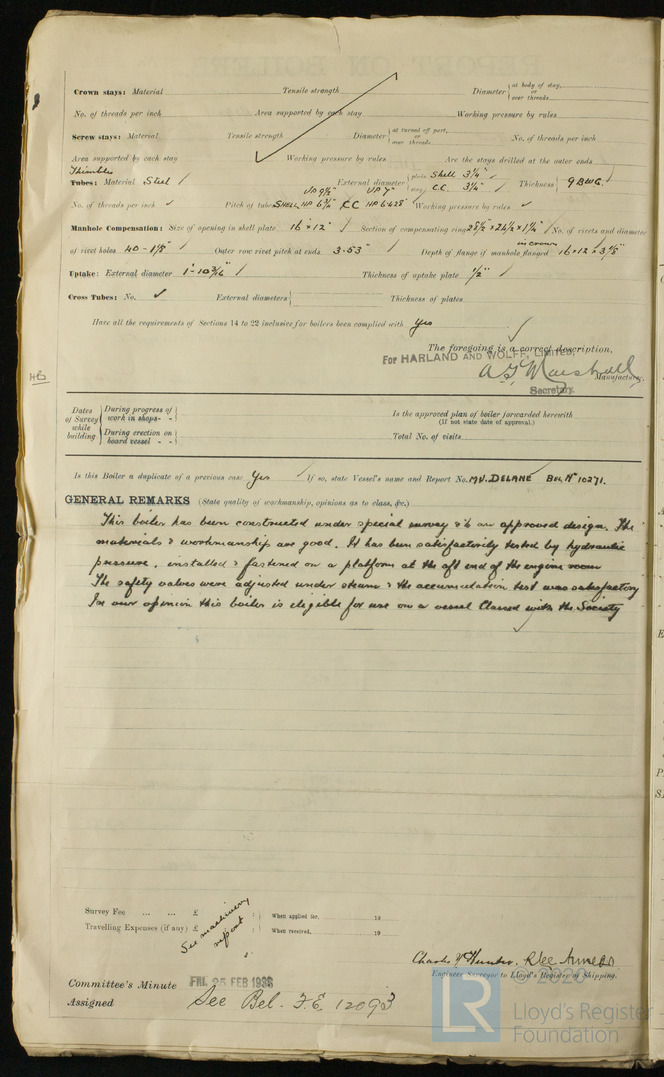 Crown stays: Material Tensile strength Diameter at body of stay, or over threads
No. of threads per inch Area supported by each stay Working pressure by rules
Screw stays: Material Tensile strength Diameter at turned off part, or over threads No. of threads per inch
Area supported by each stay Working pressure by rules Are the stays drilled at the outer ends
Thimble
Tubes: Material Steel External diameter plain Shell 3¼" stay C.C. 3¼" Thickness 9 BWG.
No. of threads per inch ✓ Pitch of tubes SHELL VP 9½" HP 6¾" CC VP 7" HP 6·428" Working pressure by rules ✓
Manhole Compensation: Size of opening in shell plate 16"×12" Section of compensating ring No. of rivets and diameter
of rivet holes 40 - 1⅛" Outer row rivet pitch at ends 3·53" Depth of flange if manhole flanged in crown 16×12×3⅛"
Uptake: External diameter 1'-10 3/16" Thickness of uptake plate ½"
Cross Tubes: No. ✓ External diameters Thickness of plates
Have all the requirements of Sections 14 to 22 inclusive for boilers been complied with Yes
The foregoing is a correct description,
For HARLAND AND WOLFF, LIMITED,
A. T. Marshall Manufacturer.
Secretary.
HB
Dates of Survey while building
During progress of work in shops - -
During erection on board vessel - -
Is the approved plan of boiler forwarded herewith
(If not state date of approval.)
Total No. of visits
Is this Boiler a duplicate of a previous case Yes If so, state Vessel's name and Report No. M.V. DELANE Bel. No 10271.
GENERAL REMARKS (State quality of workmanship, opinions as to class, &c.)
This boiler has been constructed under special survey & to an approved design. The
materials & workmanship are good. It has been satisfactorily tested by hydraulic
pressure, installed & fastened on a platform at the aft end of the engine room
The safety valves were adjusted under steam & the accumulation test was satisfactory
In our opinion this boiler is eligible for use on a vessel Classed with the Society
Survey Fee ... ... £ When applied for, 19
Travelling Expenses (if any) £ When received, 19
See machinery report
Charles Hunter. R Lee
Engineer Surveyor to Lloyd's Register of Shipping.
Committee's Minute FRI. 25 FEB 1938
Assigned See Bel. F.E. 12093
© 2020
LR Lloyd's Register
Foundation